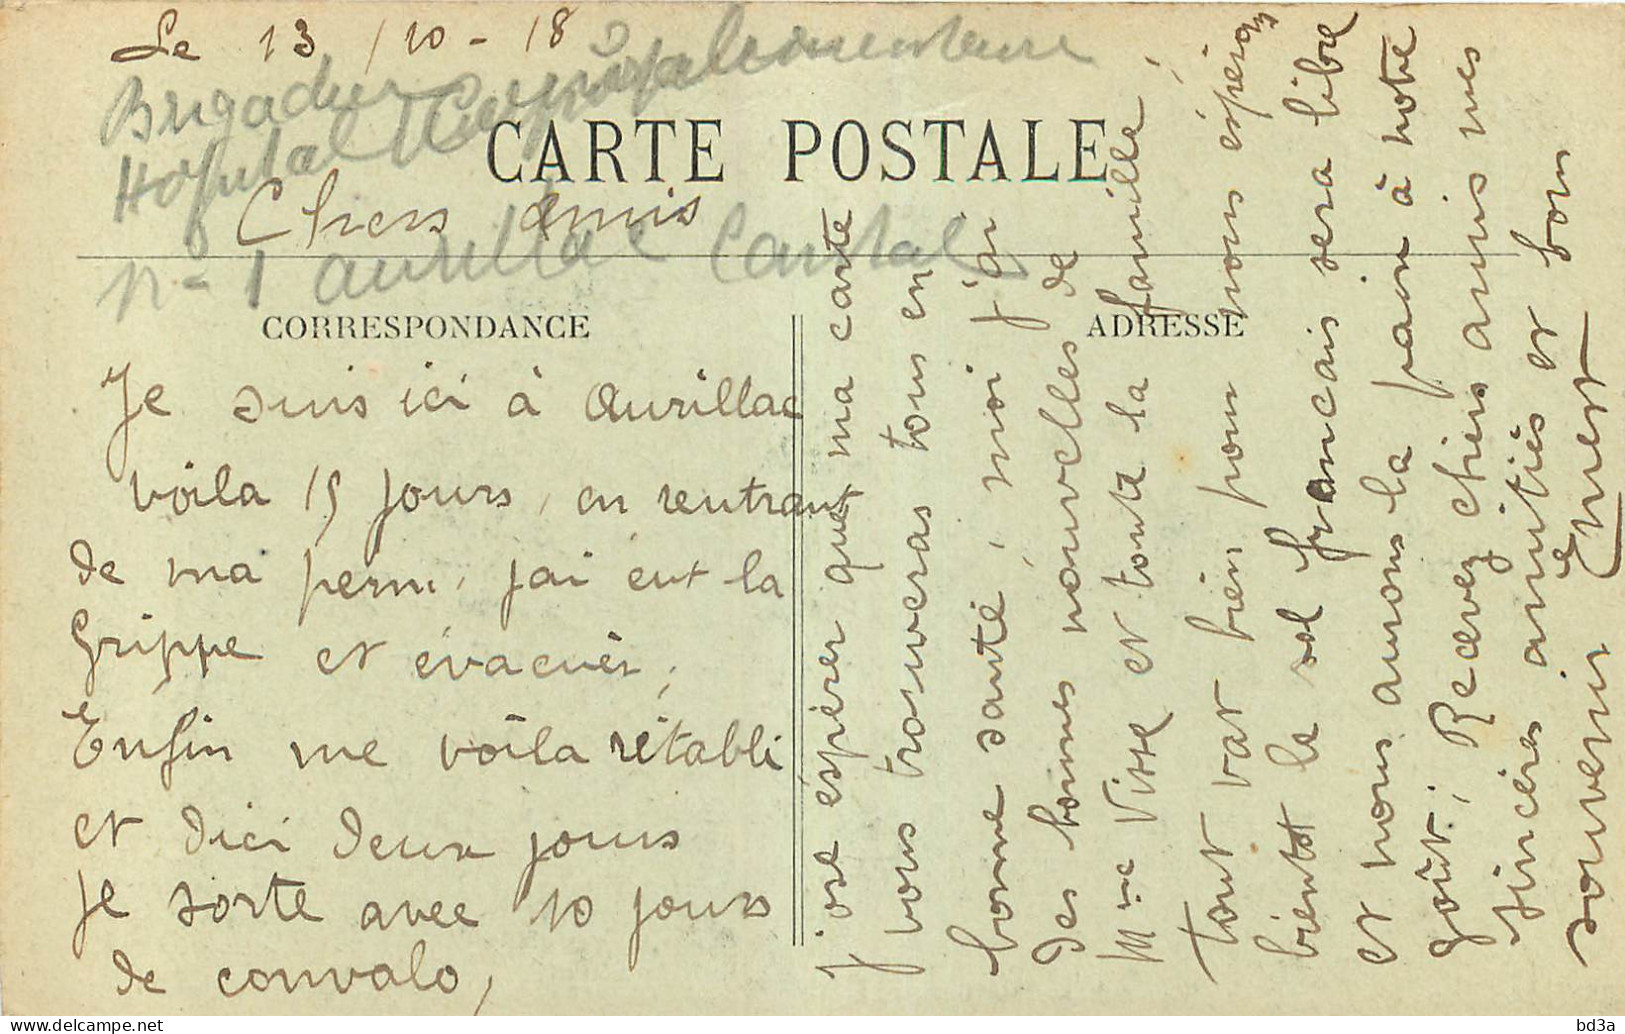 Le 13/10-18
Brigadier
Hôpital
n-1 aurillac Cantal
CARTE POSTALE
Chers amis
CORRESPONDANCE
ADRESSE
Je suis ici à Aurillac
voila 15 jours, en rentrant
de ma perm, j'ai eut la
Grippe et évacuér,
Enfin me voila rétabli
et d'ici deux jours
Je sorte avec 10 jours
de convalo,
j'ose éspérer que ma carte
vous trouveras tous en
bonne santé, moi j'ai
des bonnes nouvelles de
Mme Visse et toute la famille,
tout vat bien pour nous éspérons
bientot le sol francais sera libre
et nous aurons la pain à notre
goût, Recevez chers amis mes
sincéres amitiés et bon
souvenir Ernest
bd3a